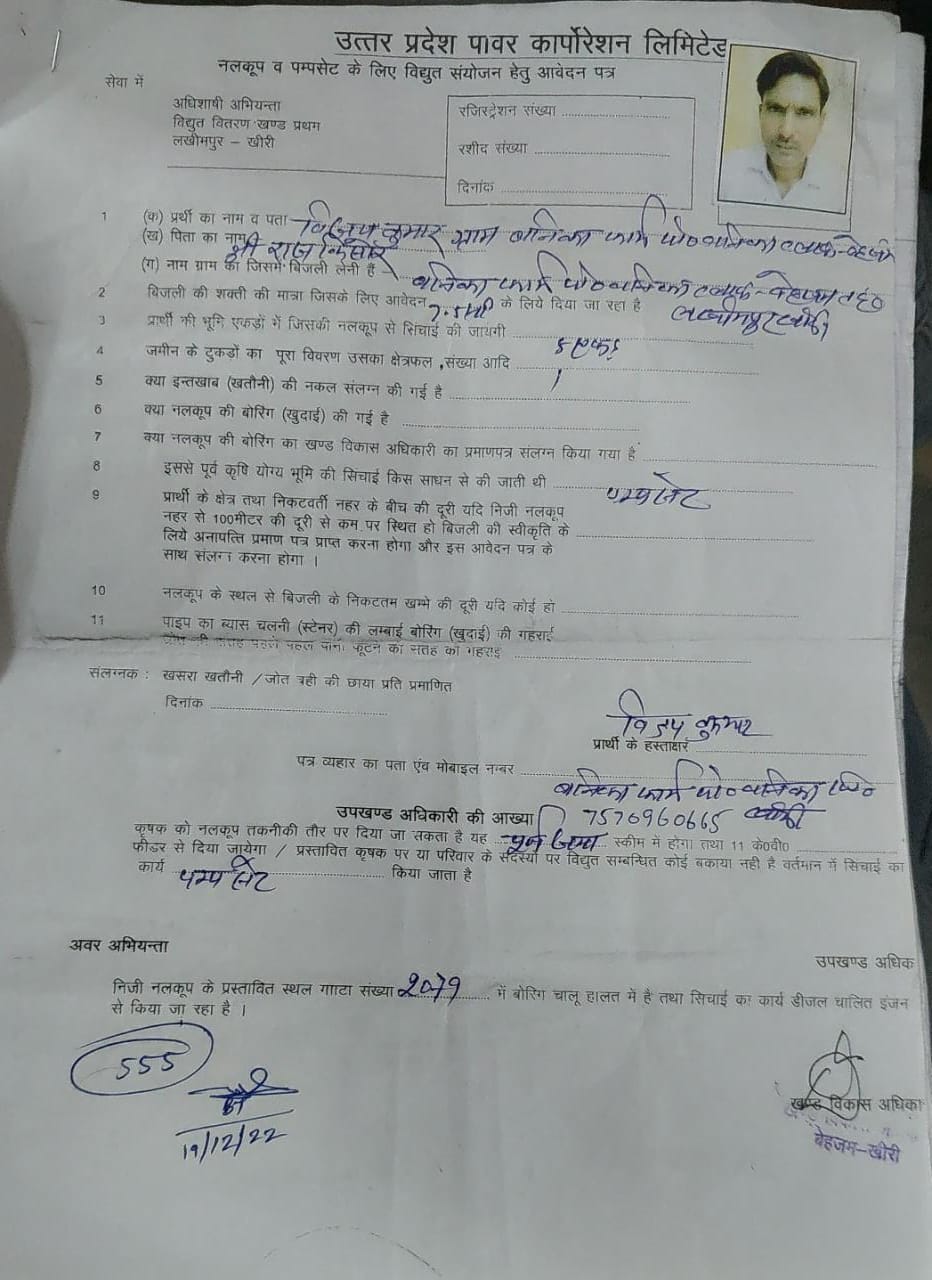 उत्तर प्रदेश पावर कार्पोरेशन लिमिटेड
नलकूप व पम्पसेट के लिए विद्युत संयोजन हेतु आवेदन पत्र
सेवा में
अधिशाषी अभियन्ता
विद्युत वितरण खण्ड प्रथम
लखीमपुर – खीरी
रजिस्ट्रेशन संख्या
रशीद संख्या
दिनांक
1 (क) प्रर्थी का नाम व पता विजय कुमार ग्राम बनिका फार्म पो०
(ख) पिता का नाम श्री राज किशोर
(ग) नाम ग्राम का जिसमें बिजली लेनी है बनिका फार्म पो०
2 बिजली की शक्ति की मात्रा जिसके लिए आवेदन 7.5 के लिये दिया जा रहा है
3 प्रार्थी की भूमि एकड़ों में जिसकी नलकूप से सिचाई की जायगी
4 जमीन के टुकड़ों का पूरा विवरण उसका क्षेत्रफल ,संख्या आदि
5 क्या इन्तखाब (खतौनी) की नकल संलग्न की गई है
6 क्या नलकूप की बोरिंग (खुदाई) की गई है
7 क्या नलकूप की बोरिंग का खण्ड विकास अधिकारी का प्रमाणपत्र संलग्न किया गया है
8 इससे पूर्व कृषि योग्य भूमि की सिचाई किस साधन से की जाती थी पम्प सेट
9 प्रार्थी के क्षेत्र तथा निकटवर्ती नहर के बीच की दूरी यदि निजी नलकूप
नहर से 100मीटर की दूरी से कम पर स्थित हो बिजली की स्वीकृति के
लिये अनापत्ति प्रमाण पत्र प्राप्त करना होगा और इस आवेदन पत्र के
साथ संलग्न करना होगा ।
10 नलकूप के स्थल से बिजली के निकटतम खम्भे की दूरी यदि कोई हो
11 पाइप का ब्यास चलनी (स्टेनर) की लम्बाई बोरिंग (खुदाई) की गहराई
पहले पहल पानी फूटने की सतह की गहराई
संलग्नक : खसरा खतौनी / जोत वही की छाया प्रति प्रमाणित
दिनांक
विजय कुमार
प्रार्थी के हस्ताक्षर
पत्र व्यहार का पता एंव मोबाइल नम्बर
बनिका फार्म पो०
7570960665
उपखण्ड अधिकारी की आख्या
कृषक को नलकूप तकनीकी तौर पर दिया जा सकता है यह पूर्ण जमा स्कीम में होगा तथा 11 के०वी०
फीडर से दिया जायेगा / प्रस्तावित कृषक पर या परिवार के सदस्यों पर विद्युत सम्बन्धित कोई बकाया नही है वर्तमान में सिचाई का
कार्य पम्प सेट किया जाता है
अवर अभियन्ता
उपखण्ड अधिक
निजी नलकूप के प्रस्तावित स्थल गााटा संख्या 2079 में बोरिंग चालू हालत में है तथा सिचाई का कार्य डीजल चालित इंजन
से किया जा रहा है ।
555
19/12/22
खण्ड विकास अधिका
बेहजम-खीरी